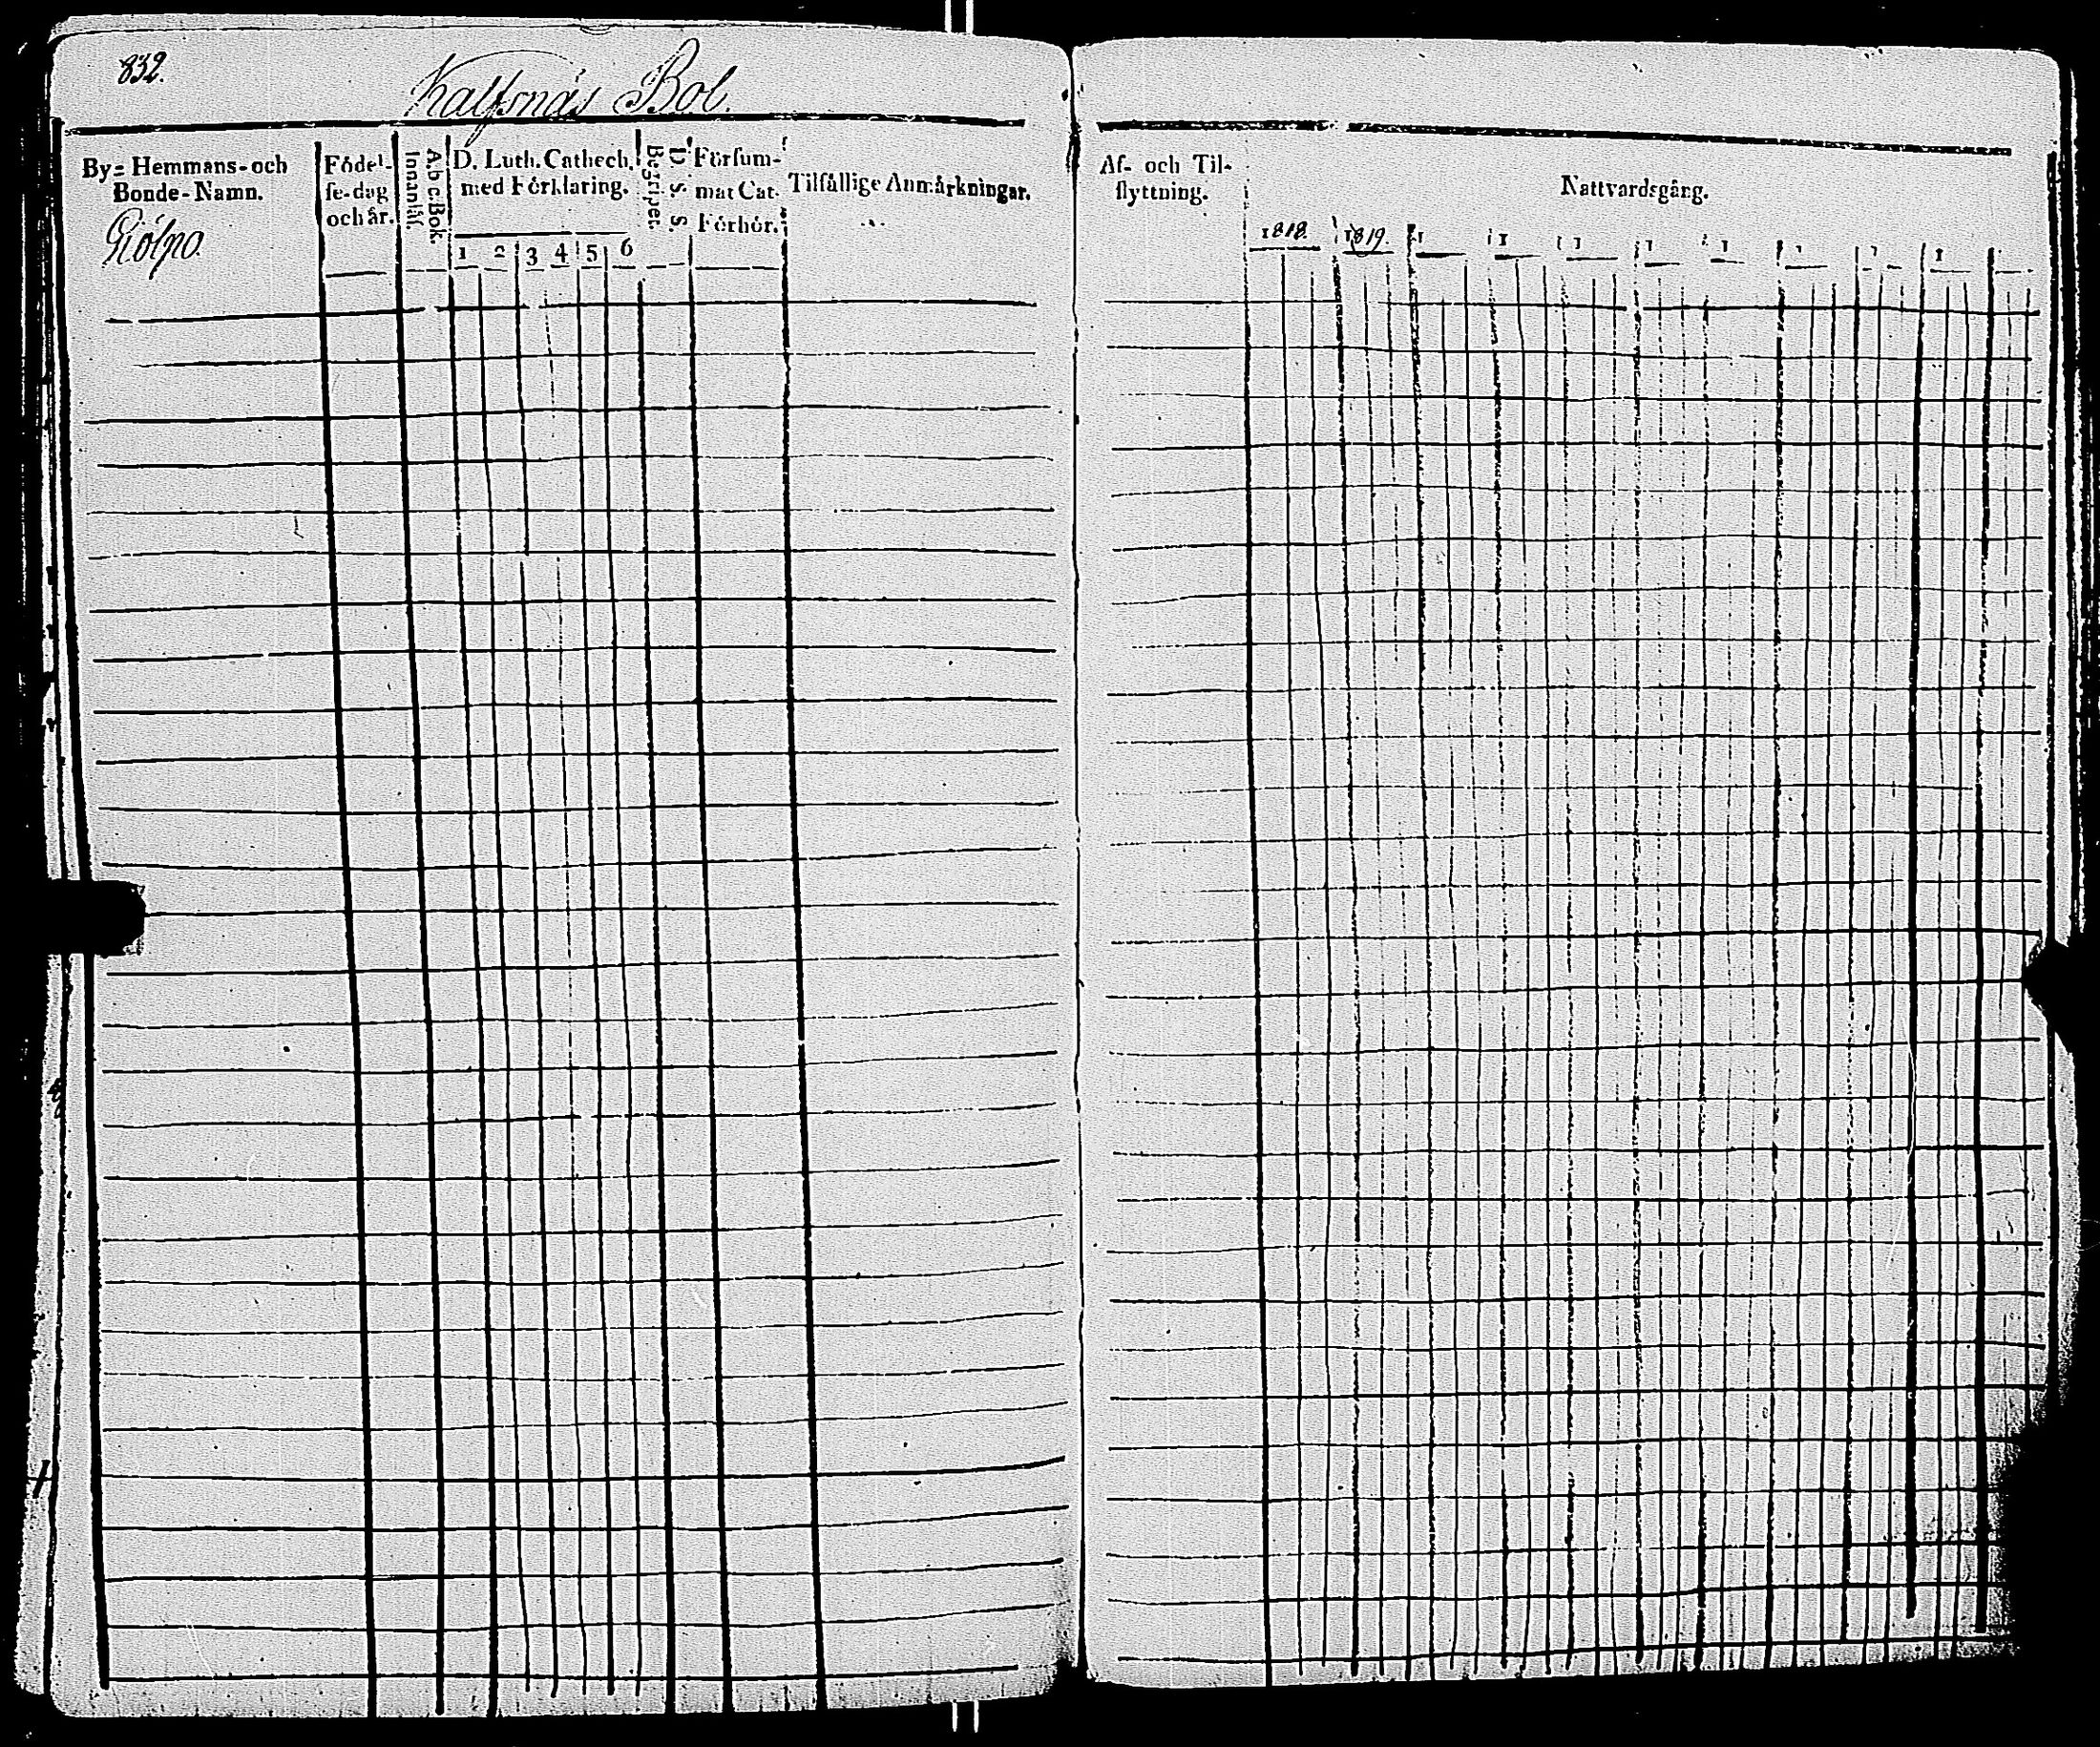 832.
Kalfsnäs Bol.
By= Hemmans- och
Bonde-Namn.
Födel-
se-dag
och år.
A.b.c. Bok.
Innanläs.
D. Luth. Cathech.
med Förklaring.
1 2 3 4 5 6
Begripet.
D. S. S.
Försum-
mat Cat.
Förhör.
Tilfällige Anmärkningar.
Af- och Til-
flyttning.
Nattvardsgång.
1818. 1819. 1 1 1 1 1 1 1 1